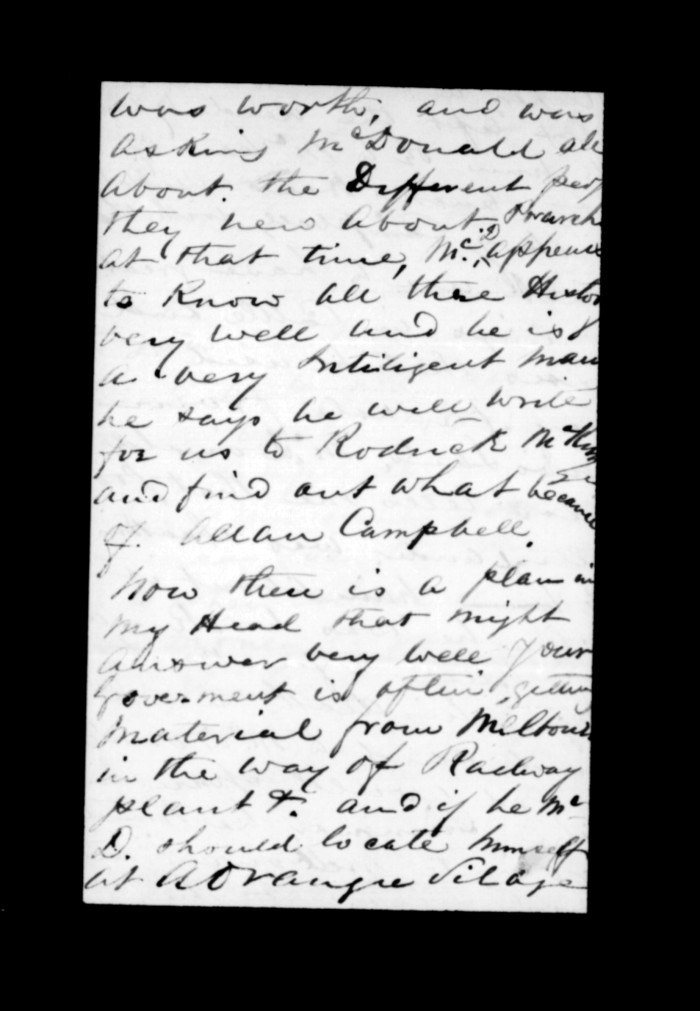 was worth, and was
asking McDonald all
about the Different
they new about
at that time, Mc.D appears
to Know all these
very well and he is
a very Intiligent man
he says he will write
for us to Rodrick
and find out what became
of. Allan Campbell.
Now there is a plan in
my Head that might
answer very well your
Goverment is often getting
material from Melbourn
in the way of Railway
plant &. and if he Mc
D. should locate himself
at